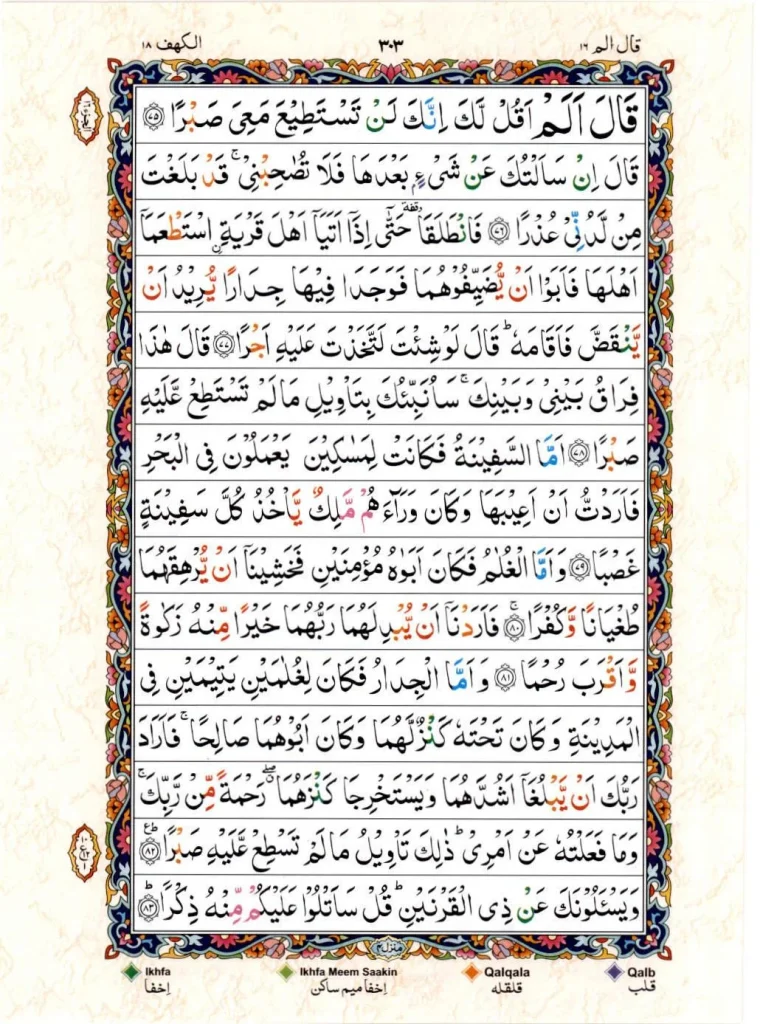 قال الم ١٦ ٣٠٣ الكهف ١٨
قَالَ اَلَمْ اَقُلْ لَّكَ اِنَّكَ لَنْ تَسْتَطِيْعَ مَعِیَ صَبْرًا ﴿۷۵﴾
قَالَ اِنْ سَاَلْتُكَ عَنْ شَیْءٍۭ بَعْدَهَا فَلَا تُصٰحِبْنِیْ ۚ قَدْ بَلَغْتَ
مِنْ لَّدُنِّیْ عُذْرًا ﴿۷۶﴾ فَانْطَلَقَا ۥ حَتّٰۤی اِذَاۤ اَتَیَاۤ اَهْلَ قَرْیَةِ ِ۟اسْتَطْعَمَاۤ
اَهْلَهَا فَاَبَوْا اَنْ یُّضَیِّفُوْهُمَا فَوَجَدَا فِیْهَا جِدَارًا یُّرِیْدُ اَنْ
یَّنْقَضَّ فَاَقَامَهٗ ؕ قَالَ لَوْ شِئْتَ لَتَّخَذْتَ عَلَیْهِ اَجْرًا ﴿۷۷﴾ قَالَ هٰذَا
فِرَاقُ بَیْنِیْ وَبَیْنِكَ ۚ سَاُنَبِّئُكَ بِتَاْوِیْلِ مَا لَمْ تَسْتَطِعْ عَّلَیْهِ
صَبْرًا ﴿۷۸﴾ اَمَّا السَّفِیْنَةُ فَكَانَتْ لِمَسٰكِیْنَ یَعْمَلُوْنَ فِی الْبَحْرِ
فَاَرَدْتُّ اَنْ اَعِیْبَهَا وَكَانَ وَرَآءَهُمْ مَّلِكٌ یَّاْخُذُ كُلَّ سَفِیْنَةٍ
غَصْبًا ﴿۷۹﴾ وَاَمَّا الْغُلٰمُ فَكَانَ اَبَوٰهُ مُؤْمِنَیْنِ فَخَشِیْنَاۤ اَنْ یُّرْهِقَهُمَا
طُغْیَانًا وَّكُفْرًا ۚ﴿۸۰﴾ فَاَرَدْنَاۤ اَنْ یُّبْدِلَهُمَا رَبُّهُمَا خَیْرًا مِّنْهُ زَكٰوةً
وَّاَقْرَبَ رُحْمًا ﴿۸۱﴾ وَاَمَّا الْجِدَارُ فَكَانَ لِغُلٰمَیْنِ یَتِیْمَیْنِ فِی
الْمَدِیْنَةِ وَكَانَ تَحْتَهٗ كَنْزٌ لَّهُمَا وَكَانَ اَبُوْهُمَا صَالِحًا ۚ فَاَرَادَ
رَبُّكَ اَنْ یَّبْلُغَاۤ اَشُدَّهُمَا وَیَسْتَخْرِجَا كَنْزَهُمَا ۖۗ رَحْمَةً مِّنْ رَّبِّكَ ۚ
وَمَا فَعَلْتُهٗ عَنْ اَمْرِیْ ؕ ذٰلِكَ تَاْوِیْلُ مَا لَمْ تَسْطِعْ عَّلَیْهِ صَبْرًا ﴿۸۲﴾
وَیَسْـَٔلُوْنَكَ عَنْ ذِی الْقَرْنَیْنِ ؕ قُلْ سَاَتْلُوْا عَلَیْكُمْ مِّنْهُ ذِكْرًا ﴿۸۳﴾
منزل ٤
Ikhfa Ikhfa Meem Saakin Qalqala Qalb
اِخفا اِخفا میم ساکن قلقله قلب